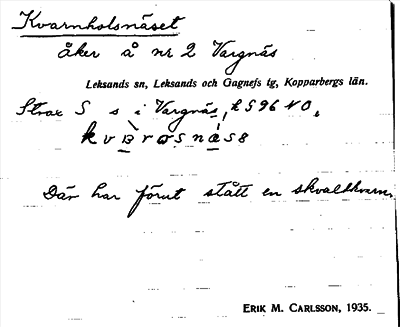 Kvarnholsnäset
åker å nr 2 Vargnäs
Leksands sn, Leksands och Gagnefs tg, Kopparbergs län.
Strax S s i Vargnäs, k 596 NO,
Där har förut stått en skvaltkvarn.
ERIK M. CARLSSON, 1935.